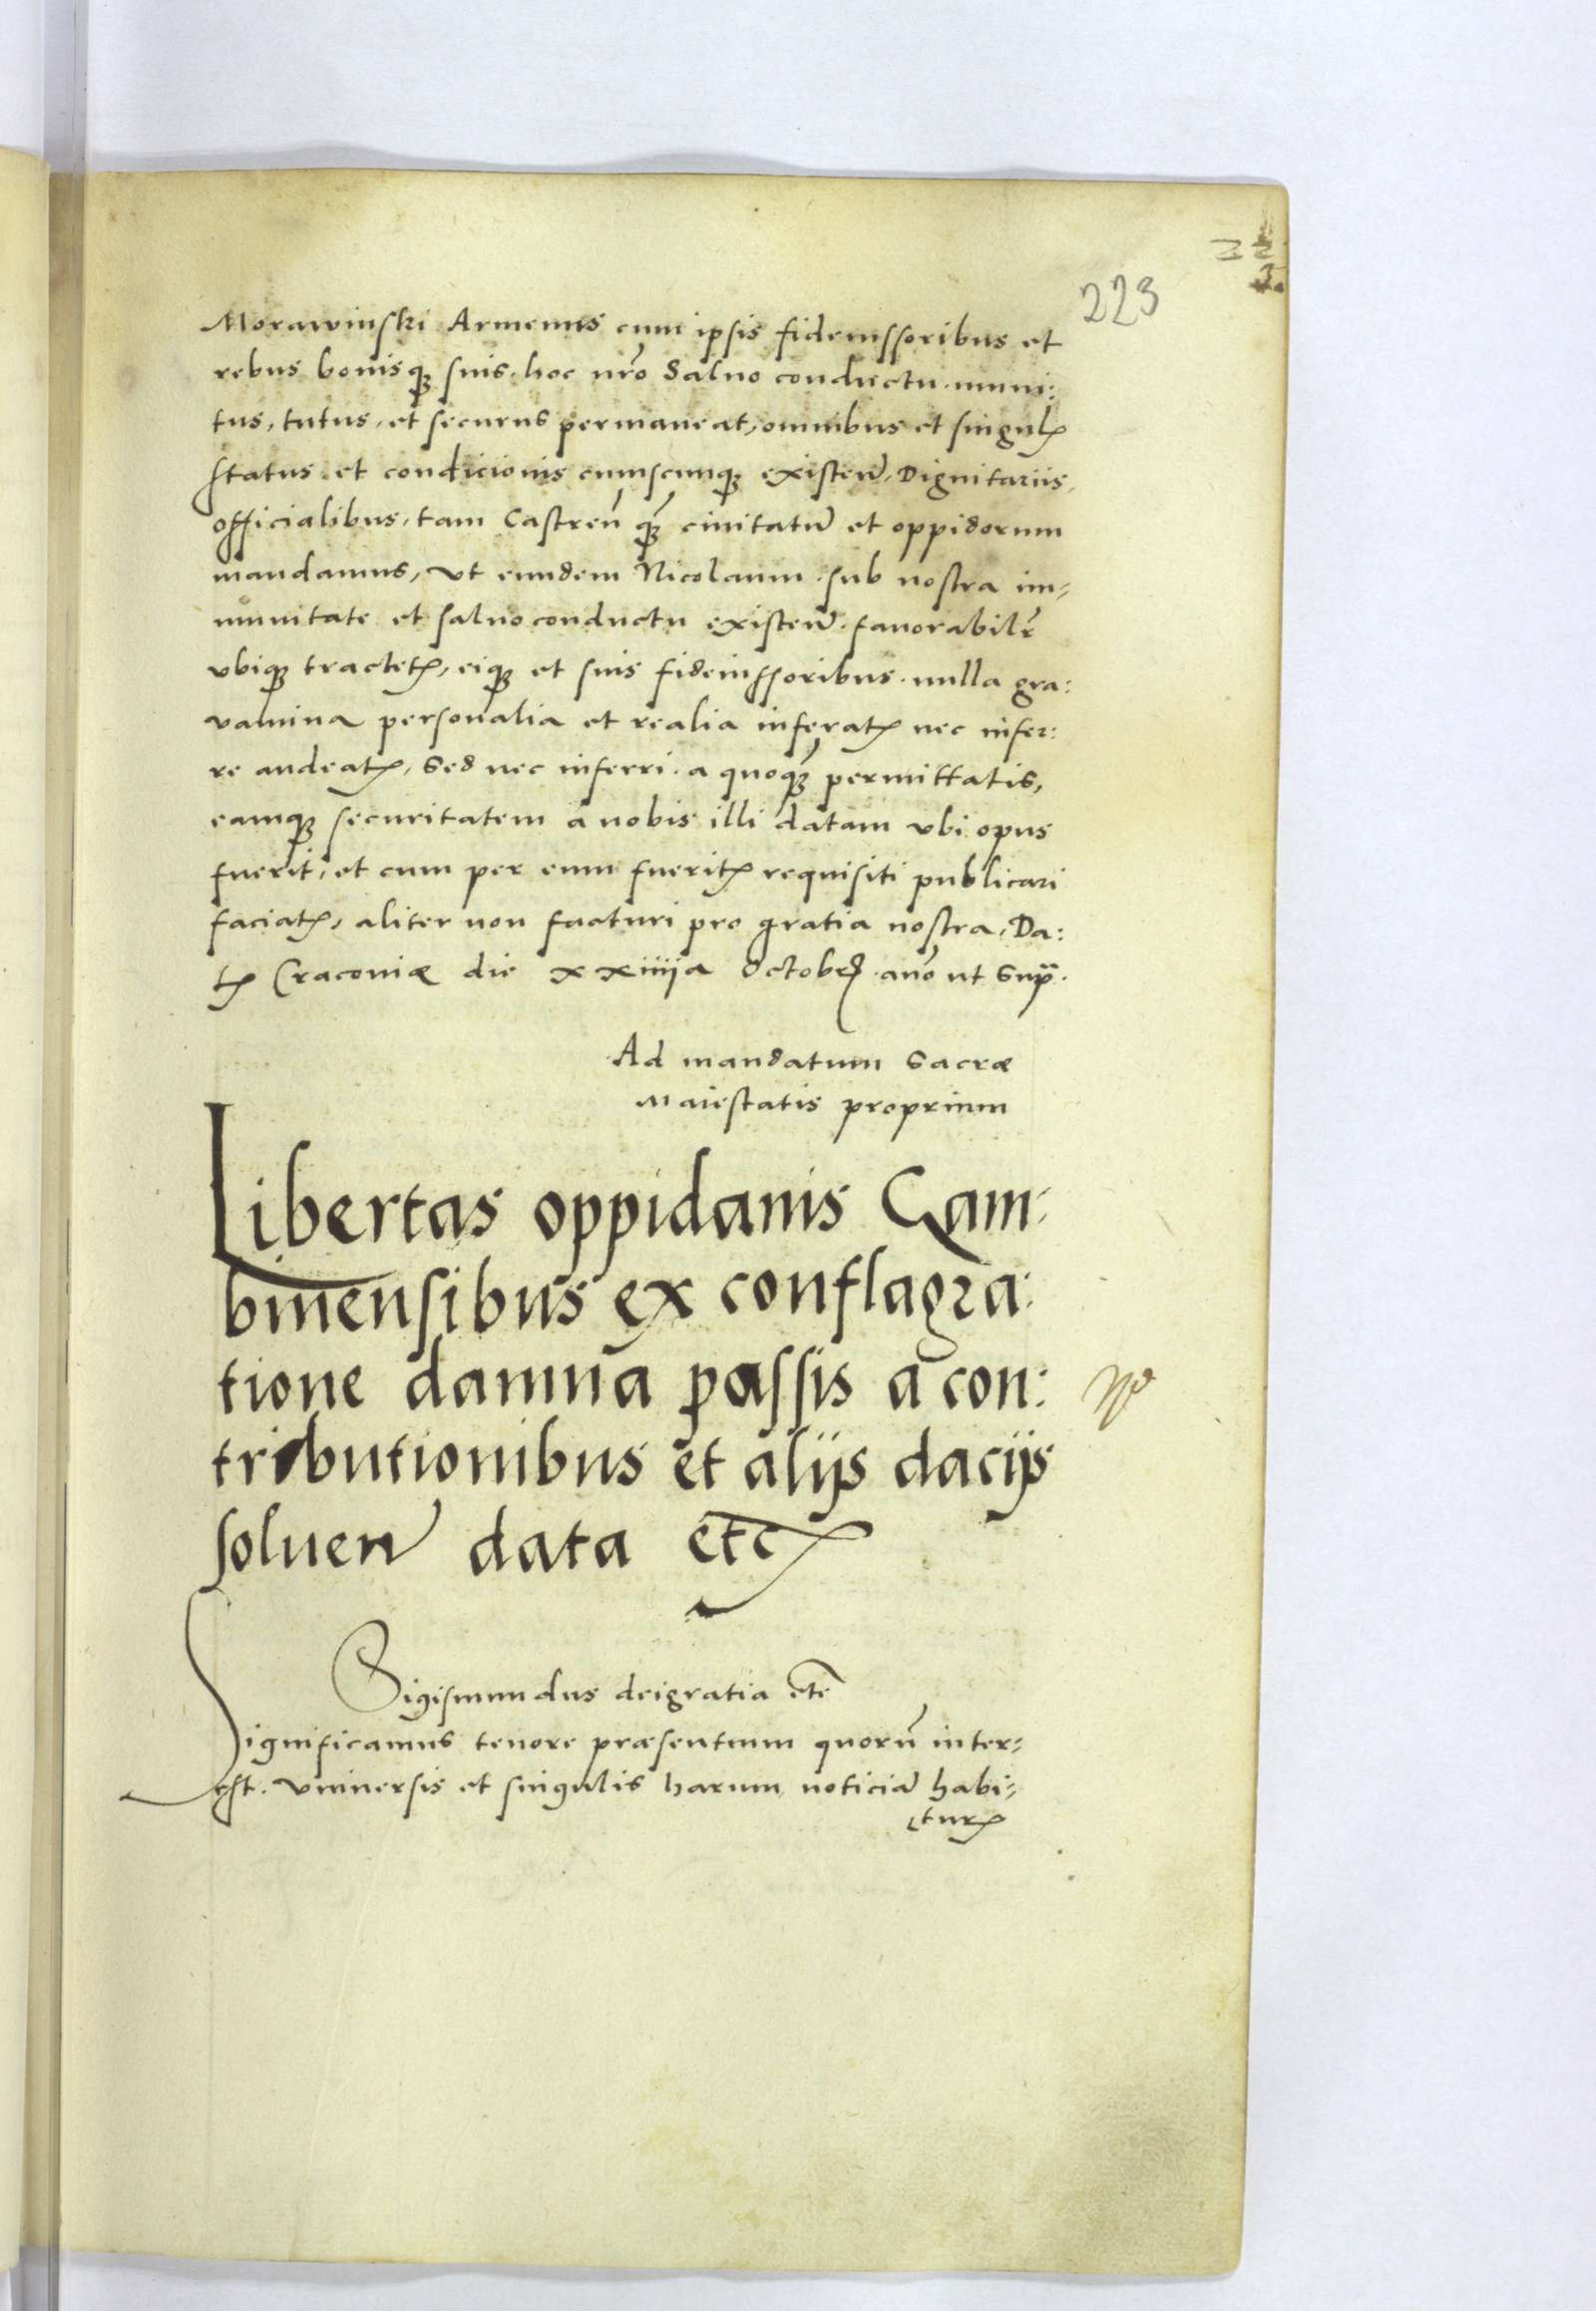 223
Morawinski Armenus cum ipsis fideiussoribus et
rebus bonisq₃ suis. hoc nr̃o Saluo conductu. muni:
tus, tutus, et securus permaneat, omnibus et singul̃
status et condicionis cuiuscunq₃ existen̄. Dignitariis,
officialibus, tam Castren̄ q̃₃ ciuitatū et oppidorum
mandamus, vt eundem Nicolaum. sub nostra im-
munitate et saluoconductu existen̄. fauorabilr̃
vbiq₃ tractetꝭ, eiq₃ et suis fideiussoribus. nulla gra:
vamina personalia et realia inferatꝭ nec infer:
re audeatꝭ, sed nec inferri. a quoq̃₃ permittatis,
eamq₃ securitatem a nobis illi datam vbi opus
fuerit, et cum per eum fueritꝭ requisiti publicari
faciatꝭ, aliter non facturi pro gratia nostra, Da:
tꝭ Cracouiæ die xxiiija Octobrꝭ. anō ut sup̃.
Ad mandatum sacræ
Maiestatis proprium
Libertas oppidanis Gam:
binensibus ex conflagra:
tione damna passis a con:
tributionibus et alijs dacijs
soluen̄ data etc̃
Sigismundus deigratia etc̃
Significamus tenore præsentium quorū inter-
est. vniuersis et singulis harum noticiā habi-
turꝭ